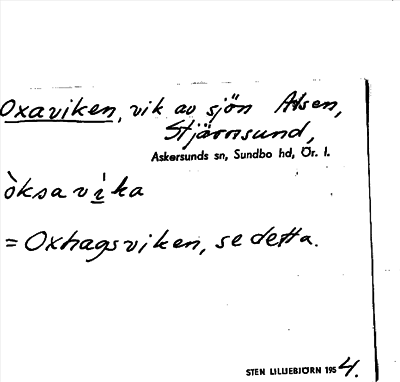 Oxaviken, vik av sjön Alsen,
Stjärnsund,
Askersunds sn, Sundbo hd, Ör. l.
òksavi̇ka
= Oxhagsviken, se detta.
STEN LILLIEBJÖRN 1954.